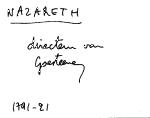 NAZARETH
directeur van
1791-21